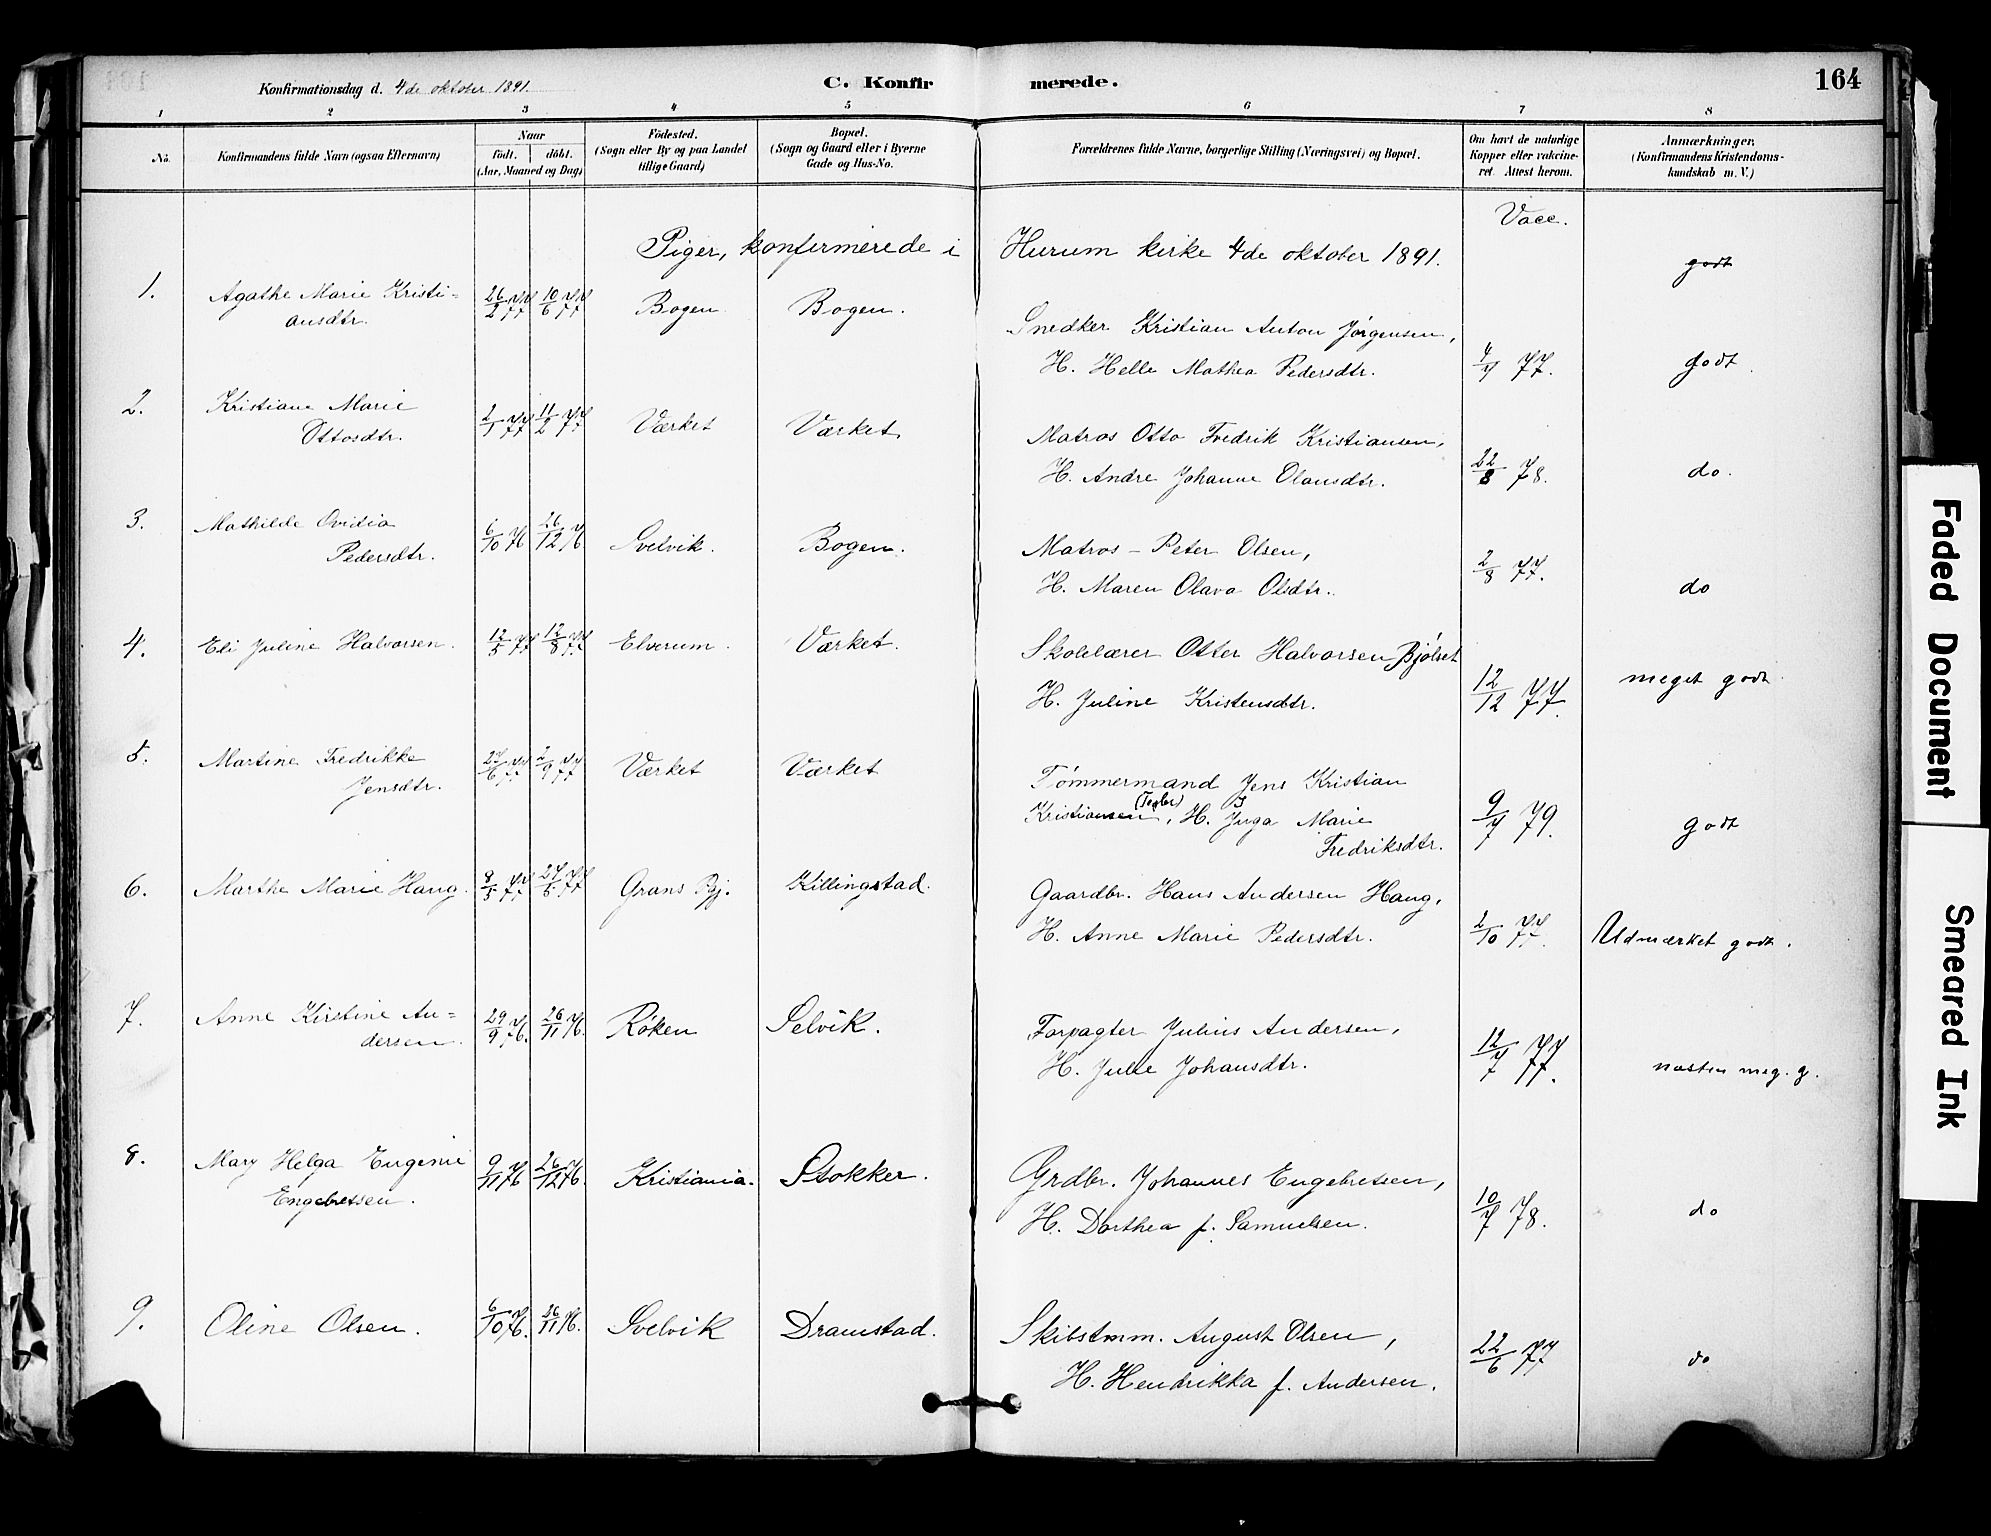 Konfirmationsdag d. 4de oktober 1891.
C. Konfirmerede.
164
1 2 3 4 5 6 7 8
No.
Konfirmandens fulde Navn (ogsaa Efternavn)
Naar
født. døbt.
(Aar, Maaned og Dag)
Födested.
(Sogn eller By og paa Landet
tillige Gaard)
Bopæl.
(Sogn og Gaard eller i Byerne
Gade og Hus-No.
Forældrenes fulde Navne, borgerlige Stilling (Næringsvei) og Bopæl.
Om havt de naturlige
Kopper eller vakcine-
ret. Attest herom.
Anmærkninger.
(Konfirmandens Kristendoms-
kundskab m. V.)
Vacc.
Piger, konfermerede i Hurum kirke 4de oktober 1891.
godt
1. Agathe Marie Kristi- 26/2 77 10/6 77 Bogen Bogen.
ansdtr.
Snedker Kristian Anton Jørgensen,
H. Helle Mathea Pedersdtr. 4/7 77. godt.
2. Kristiane Marie 2/1 77 11/2 77 Værket Værket
Ottosdtr.
Matros Otto Fredrik Kristiansen,
H. Andre Johanne Olausdtr. 22/8 78. do.
3. Mathilde Ovidia 6/10 76 26/12 76. Svelvik. Bogen.
Pedersdtr.
Matros - Peter Olsen,
H. Maren Olava Olsdtr. 2/8 77. do
4. Eli Juline Halvorsen. 12/5 77 12/8 77. Elverum. Værket.
Skolelærer Otter Halvorsen Bjølset
H. Juline Kristensdtr. 12/12 77. meget godt.
5. Martine Fredrikke 27/6 77. 2/9 77 Værket Værket
Jensdtr.
Tømmermand Jens Kristian
Kristiansen, (Tegler) H. Inga Marie
Fredriksdtr. 9/7 79. godt
6. Marthe Marie Haug. 8/5 77 27/5 77 Grans Pgj. Killingstad.
Gaardbr. Hans Andersen Haug,
H. Anne Marie Pedersdtr. 2/10 77. Udmærket godt.
7. Anne Kirstine An- 29/9 76. 26/11 76. Røken Selvik.
dersen.
Forpagter Julius Andersen,
H. Julie Johansdtr. 12/7 77. næsten meg. g.
8. Mary Helga Eugenie 9/11 76 26/12 76. Kristiania. Stokker.
Engebretsen.
Grdbr. Johannes Engebretsen,
H. Dorthea f. Samuelsen. 10/7 78. do
9. Oline Olsen. 6/10 76. 26/11 76. Svelvik Dramstad.
Skibstmm. August Olsen,
H. Hendrikka f. Andersen. 22/6 77 do
Faded Document
Smeared Ink